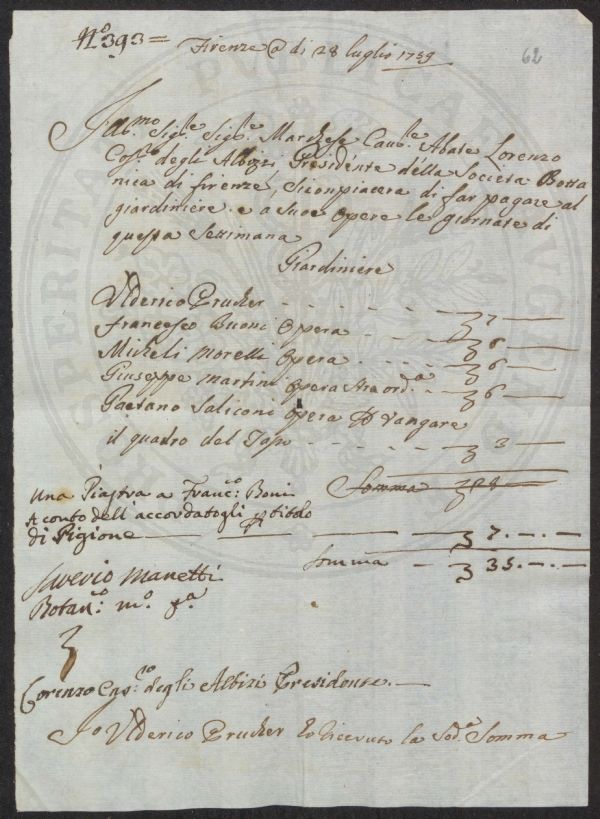 N.º 393 =
62
Firenze a di 28 luglio 1759
Ill.mo Sig.re Sig.re Marchese Cav.re Abate Lorenzo
Cos.mo degl' Albizzi Presidente della Società Botta
nica di firenze, Siconpiacera di far pagare al
giardiniere e a sue opere le giornate di
questa Settimana
Giardiniere
Vlderico Prucker - - - - - 7 —
Francesco Buoni Opera - - - 6 —
Micheli Morelli Opera - - - 6 —
Giuseppe Martini Opera straord.a - 6 —
Gaetano Saliconi Opera P Vangare
il quadro del - - - - 3 —
Una Piastra a Franc.o Boni Somma 28 —
A conto dell'accordatogli P titolo
di Pigione — — — 7.-.-
Somma - 35.-.-
Saverio Manetti
Botan.o m.o p.a
Lorenzo Cos.mo degli Albizi Presidente.—
Io Vlderico Prucker ho ricevuto la Sod.a Somma